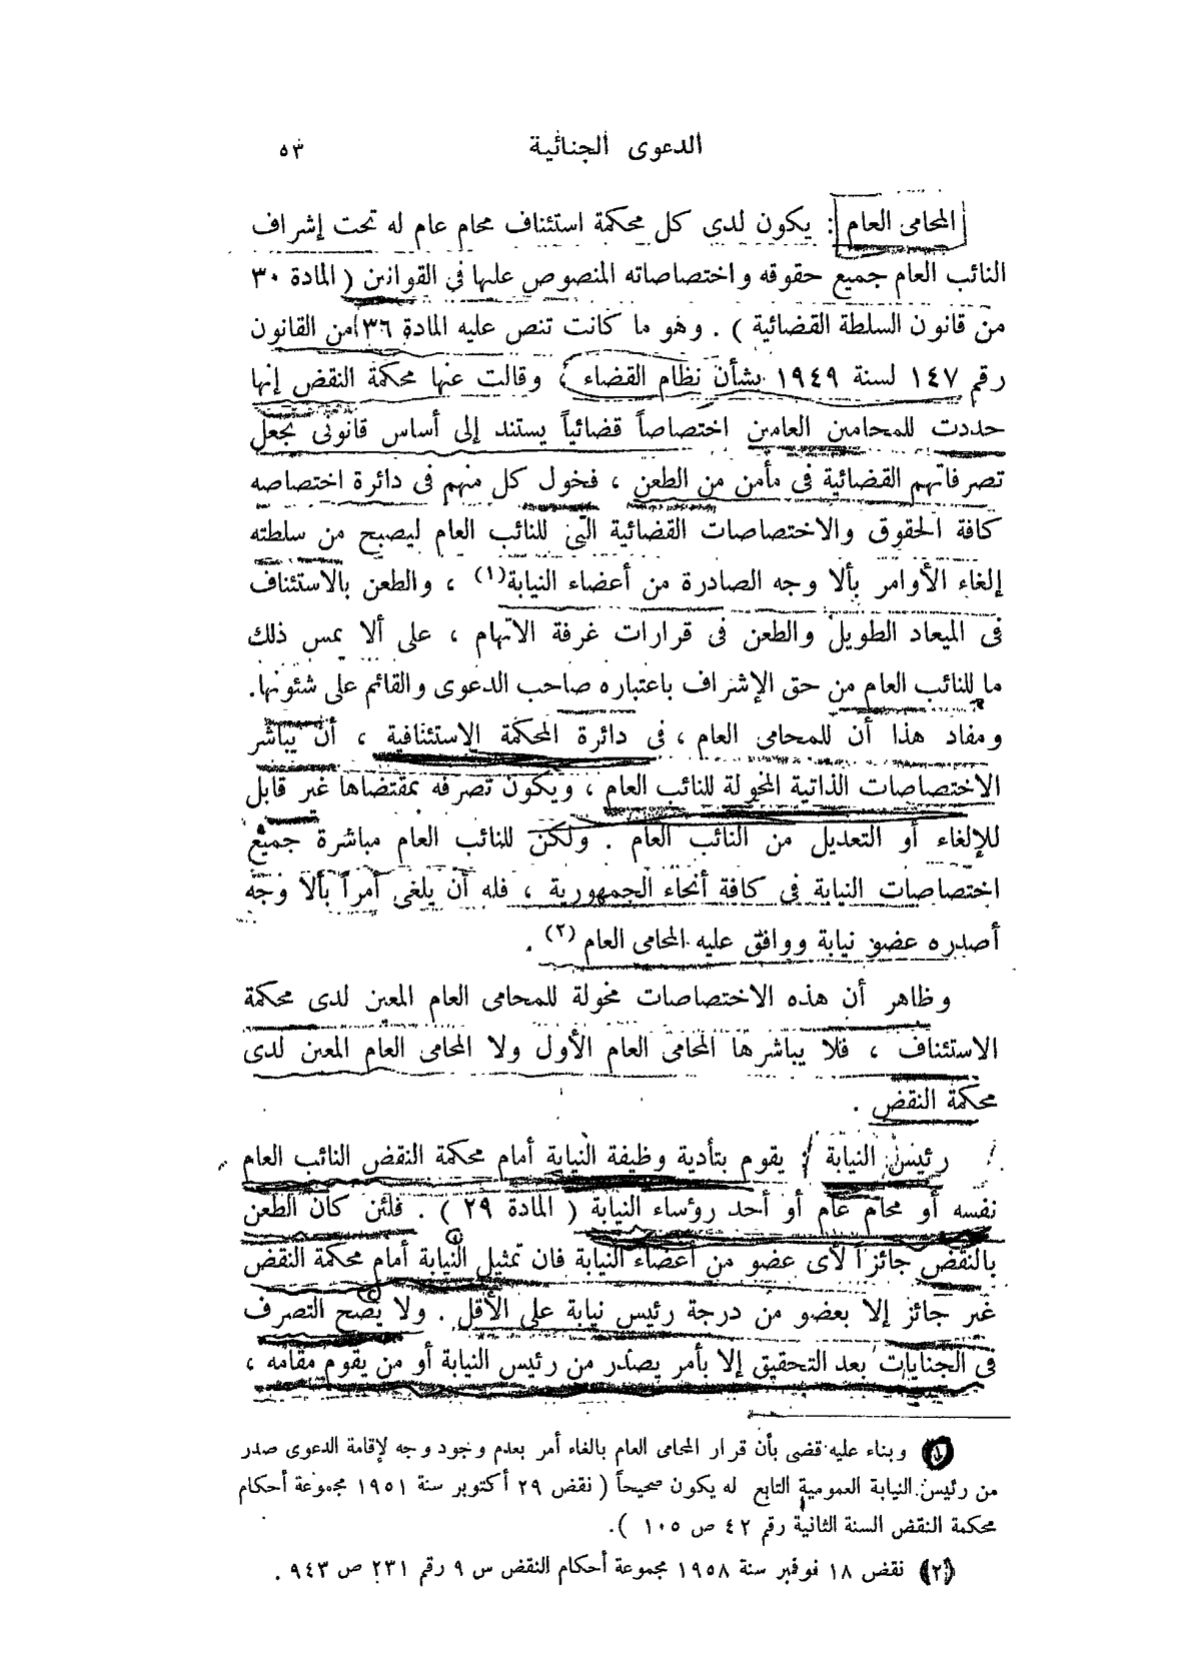 الدعوى الجنائية ٥٣
المحامى العام : يكون لدى كل محكمة استئناف محام عام له تحت إشراف
النائب العام جميع حقوقه واختصاصاته المنصوص عليها فى القوانين ( المادة ٣٠
من قانون السلطة القضائية ) . وهو ما كانت تنص عليه المادة ٣٦ من القانون
رقم ١٤٧ لسنة ١٩٤٩ بشأن نظام القضاء ، وقالت عنها محكمة النقض إنها
حددت للمحامين العامين اختصاصاً قضائياً يستند إلى أساس قانونى يجعل
تصرفاتهم القضائية فى مأمن من الطعن ، فخول كل منهم فى دائرة اختصاصه
كافة الحقوق والاختصاصات القضائية التى للنائب العام ليصبح من سلطته
إلغاء الأوامر بألا وجه الصادرة من أعضاء النيابة(١) ، والطعن بالاستئناف
فى الميعاد الطويل والطعن فى قرارات غرفة الاتهام ، على ألا يمس ذلك
ما للنائب العام من حق الإشراف باعتباره صاحب الدعوى والقائم على شئونها.
ومفاد هذا أن للمحامى العام ، فى دائرة المحكمة الاستئنافية ، أن يباشر
الاختصاصات الذاتية المخولة للنائب العام ، ويكون تصرفه بمقتضاها غير قابل
للإلغاء أو التعديل من النائب العام . ولكن للنائب العام مباشرة جميع
اختصاصات النيابة فى كافة أنحاء الجمهورية ، فله أن يلغى أمراً بألا وجه
أصدره عضو نيابة ووافق عليه المحامى العام (٢) .
وظاهر أن هذه الاختصاصات مخولة للمحامى العام المعين لدى محكمة
الاستئناف ، فلا يباشرها المحامى العام الأول ولا المحامى العام المعين لدى
محكمة النقض .
رئيس النيابة : يقوم بتأدية وظيفة النيابة أمام محكمة النقض النائب العام
نفسه أو محام عام أو أحد رؤساء النيابة ( المادة ٢٩ ) . فلئن كان الطعن
بالنقض جائزاً لأى عضو من أعضاء النيابة فان تمثيل النيابة أمام محكمة النقض
غير جائز إلا بعضو من درجة رئيس نيابة على الأقل . ولا يصح التصرف
فى الجنايات بعد التحقيق إلا بأمر يصدر من رئيس النيابة أو من يقوم مقامه ،
(١) وبناء عليه قضى بأن قرار المحامى العام بالغاء أمر بعدم وجود وجه لإقامة الدعوى صدر
من رئيس النيابة العمومية التابع له يكون صحيحاً ( نقض ٢٩ أكتوبر سنة ١٩٥١ مجموعة أحكام
محكمة النقض السنة الثانية رقم ٤٢ ص ١٠٥ ).
(٢) نقض ١٨ نوفمبر سنة ١٩٥٨ مجموعة أحكام النقض س ٩ رقم ٢٣١ ص ٩٤٣ .